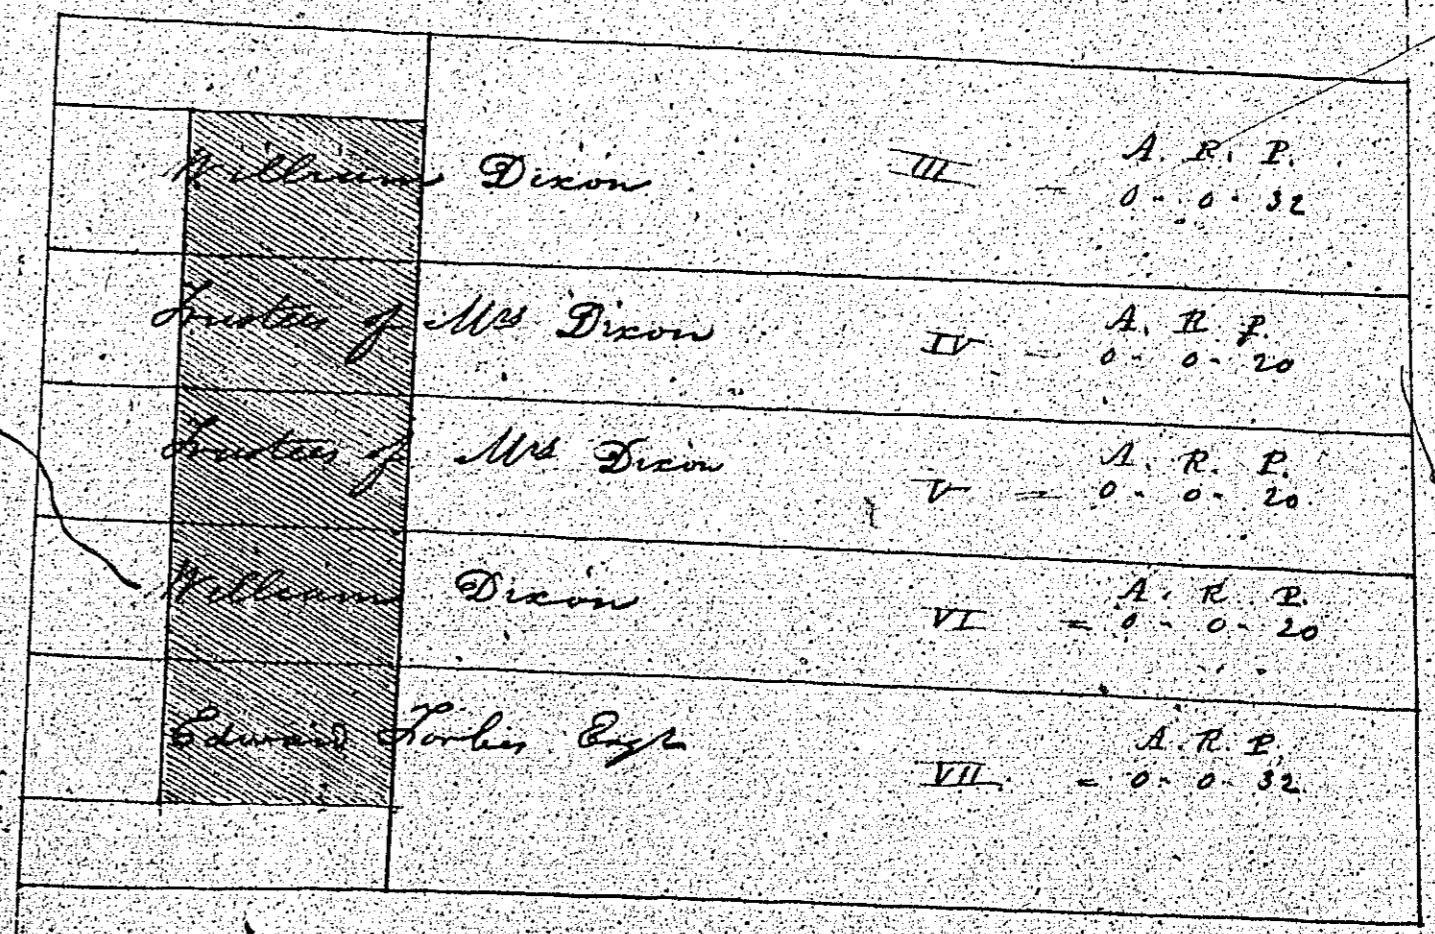 William Dixon III - A. R. P.
0 - 0 - 32
Trustees of Mrs Dixon IV - A. R. P.
0 - 0 - 20
Trustees of Mrs Dixon V - A. R. P.
0 - 0 - 20
William Dixon VI = A. R. P.
0 - 0 - 20
Edward Forbes Esqr VII = A. R. P.
0 - 0 - 32